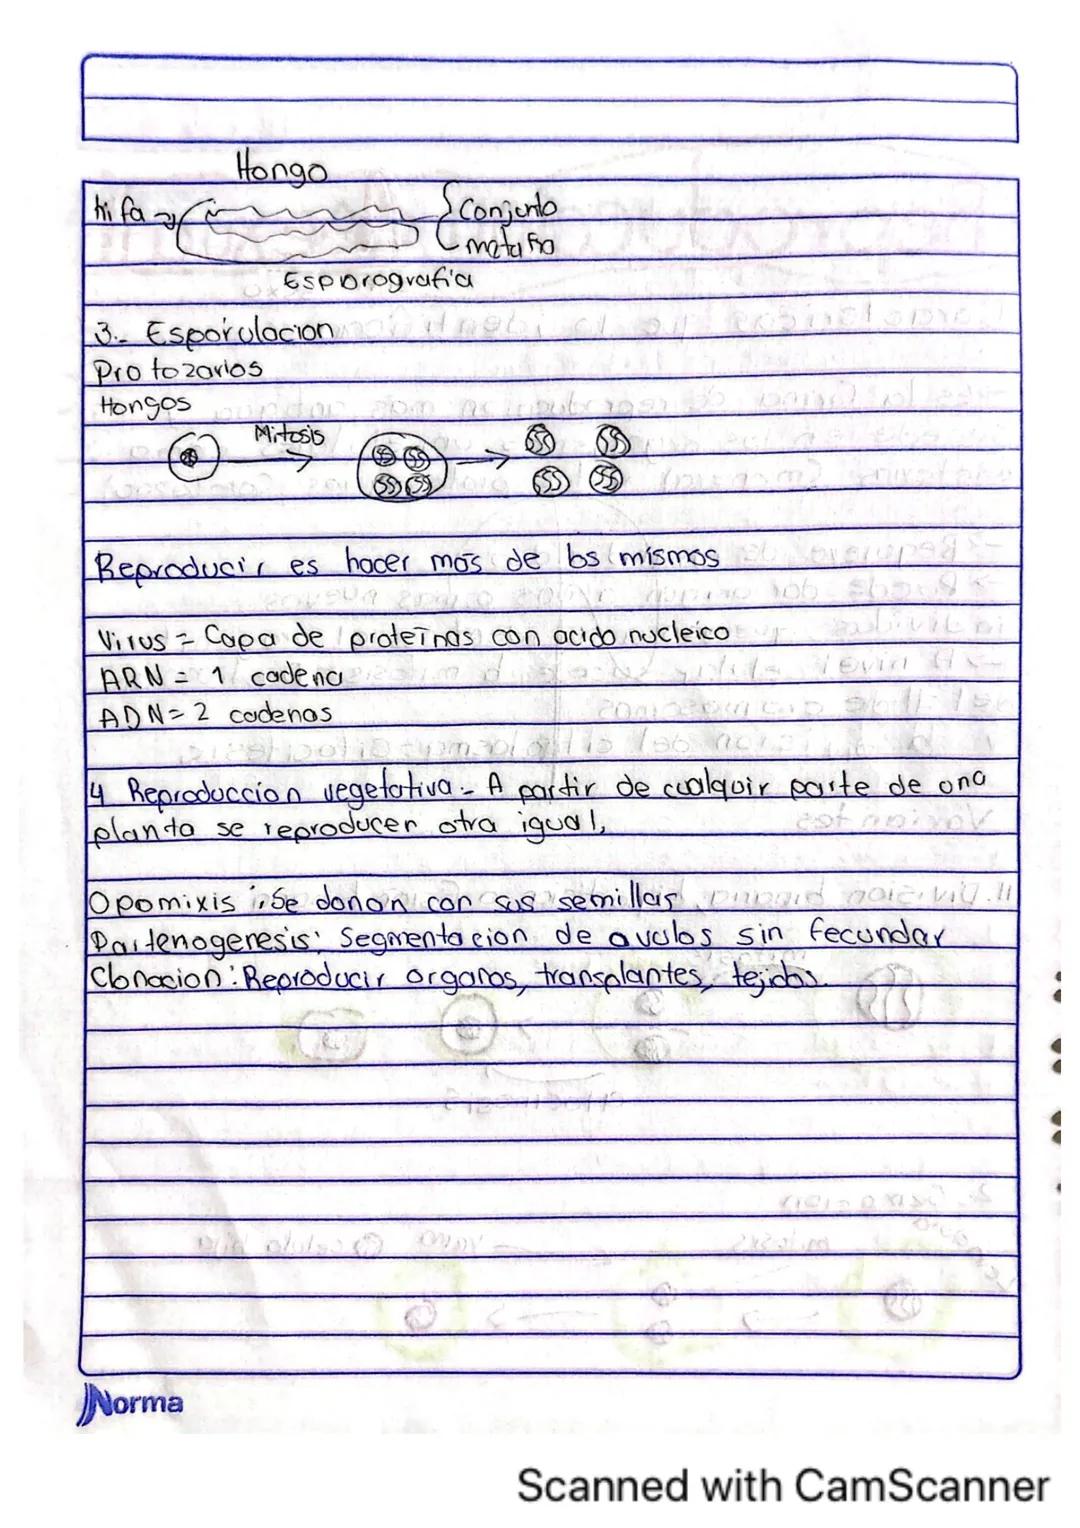 Hongo
hifa
Conjunto
Esporografia
3.- Esporulacion
Protozarios
Hongos
Mitosis
Reproducir es hacer mas de los mismos
Virus = Capa de proteínas con acido nucleico
ARN = 1 cadena
ADN = 2 cadenas
4 Reproduccion vegetativa.- A partir de cualquir parte de una
planta se reproducer otra igual,
Opomixis : Se donan con sus semillas
Partenogeresis: Segmentacion de ovulos sin fecundar
Clonacion: Reproducir organos, transplantes, tejidos.
Norma
Scanned with CamScanner